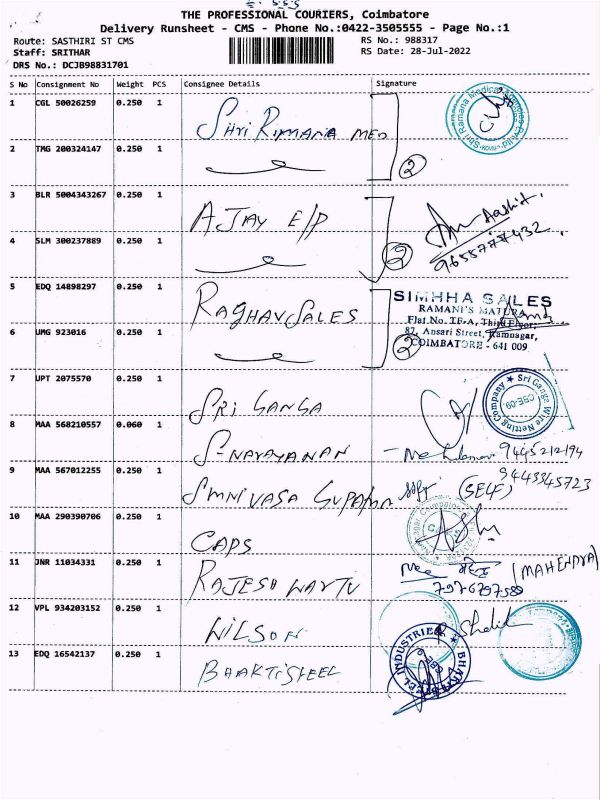 THE PROFESSIONAL COURIERS, Coimbatore
Delivery Runsheet - CMS - Phone No.:0422-3505555 - Page No.:1
Route: SASTHIRI ST CMS RS No.: 988317
Staff: SRITHAR RS Date: 28-Jul-2022
DRS No.: DCJB98831701
S No Consignment No Weight PCS Consignee Details Signature
1 CGL 50026259 0.250 1 Shri Ramana MED
2 TMG 200324147 0.250 1 2
3 BLR 5004343267 0.250 1 AJAY E/P Aashit
9655777432
4 SLM 300237889 0.250 1 2
5 EDQ 14898297 0.250 1 RAGHAV SALES SIMHHA SALES
RAMANI'S MATURAM
Flat No. TF-A, Third Floor,
87, Ansari Street, Ramnagar,
COIMBATORE - 641 009
6 UMG 923016 0.250 1 2
7 UPT 2075570 0.250 1 SRI GANGA Sri Ganga Wire Netting Company CBE-09
8 MAA 568210557 0.060 1 S-NARAYANAN 9445212194
9 MAA 567012255 0.250 1 (SELF) 9443345723
10 MAA 290390706 0.250 1 CAPS
11 JNR 11034331 0.250 1 RAJESH (MAHENDRA)
7976797589
12 VPL 934203152 0.250 1 WILSON
13 EDQ 16542137 0.250 1 BHAKTI STEEL